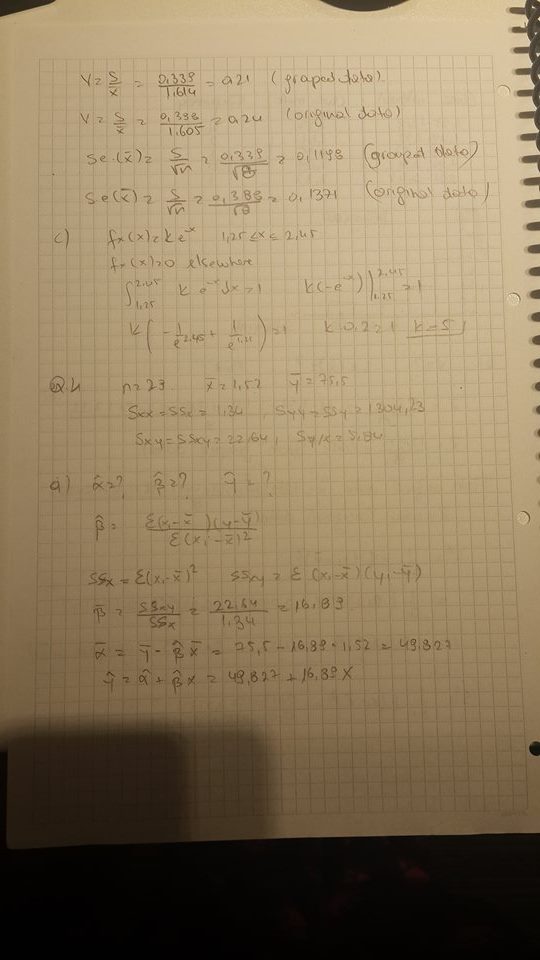 V = S/x̄ = 0,339/1.614 = 0.21 (graped data)
V = S/x̄ = 0,388/1.605 = 0.24 (original data)
Se.(x̄) = S/√n = 0.339/√8 = 0,1198 (grouped data)
Se(x̄) = S/√n = 0,388/√8 = 0,1371 (original data)
c) fx(x) = k e^-x 1,25 ≤ x ≤ 2,45
fx(x) = 0 elsewhere
∫_{1.25}^{2.45} k e^-x dx = 1 k(-e^-x)|_{1.25}^{2.45} = 1
k(-1/e^2.45 + 1/e^1.25) = 1 k 0.2 = 1 k = 5
Q.4 n = 23 x̄ = 1,52 ȳ = 75,5
Sxx = SSx = 1,34, Syy = SSy = 1304,23
Sxy = SSxy = 22,64, Sy/x = 5,84
a) α̂ = ? β̂ = ? Ŷ = ?
β̂ = Σ(xi - x̄)(y - ȳ) / Σ(xi - x̄)²
SSx = Σ(xi - x̄)² SSxy = Σ(xi - x̄)(yi - ȳ)
β̄ = SSxy/SSx = 22.64/1.34 = 16,89
ᾱ = Ȳ - β̂ x̄ = 75,5 - 16,89 · 1,52 = 49,827
Ŷ = α̂ + β̂x = 49,827 + 16,89 X